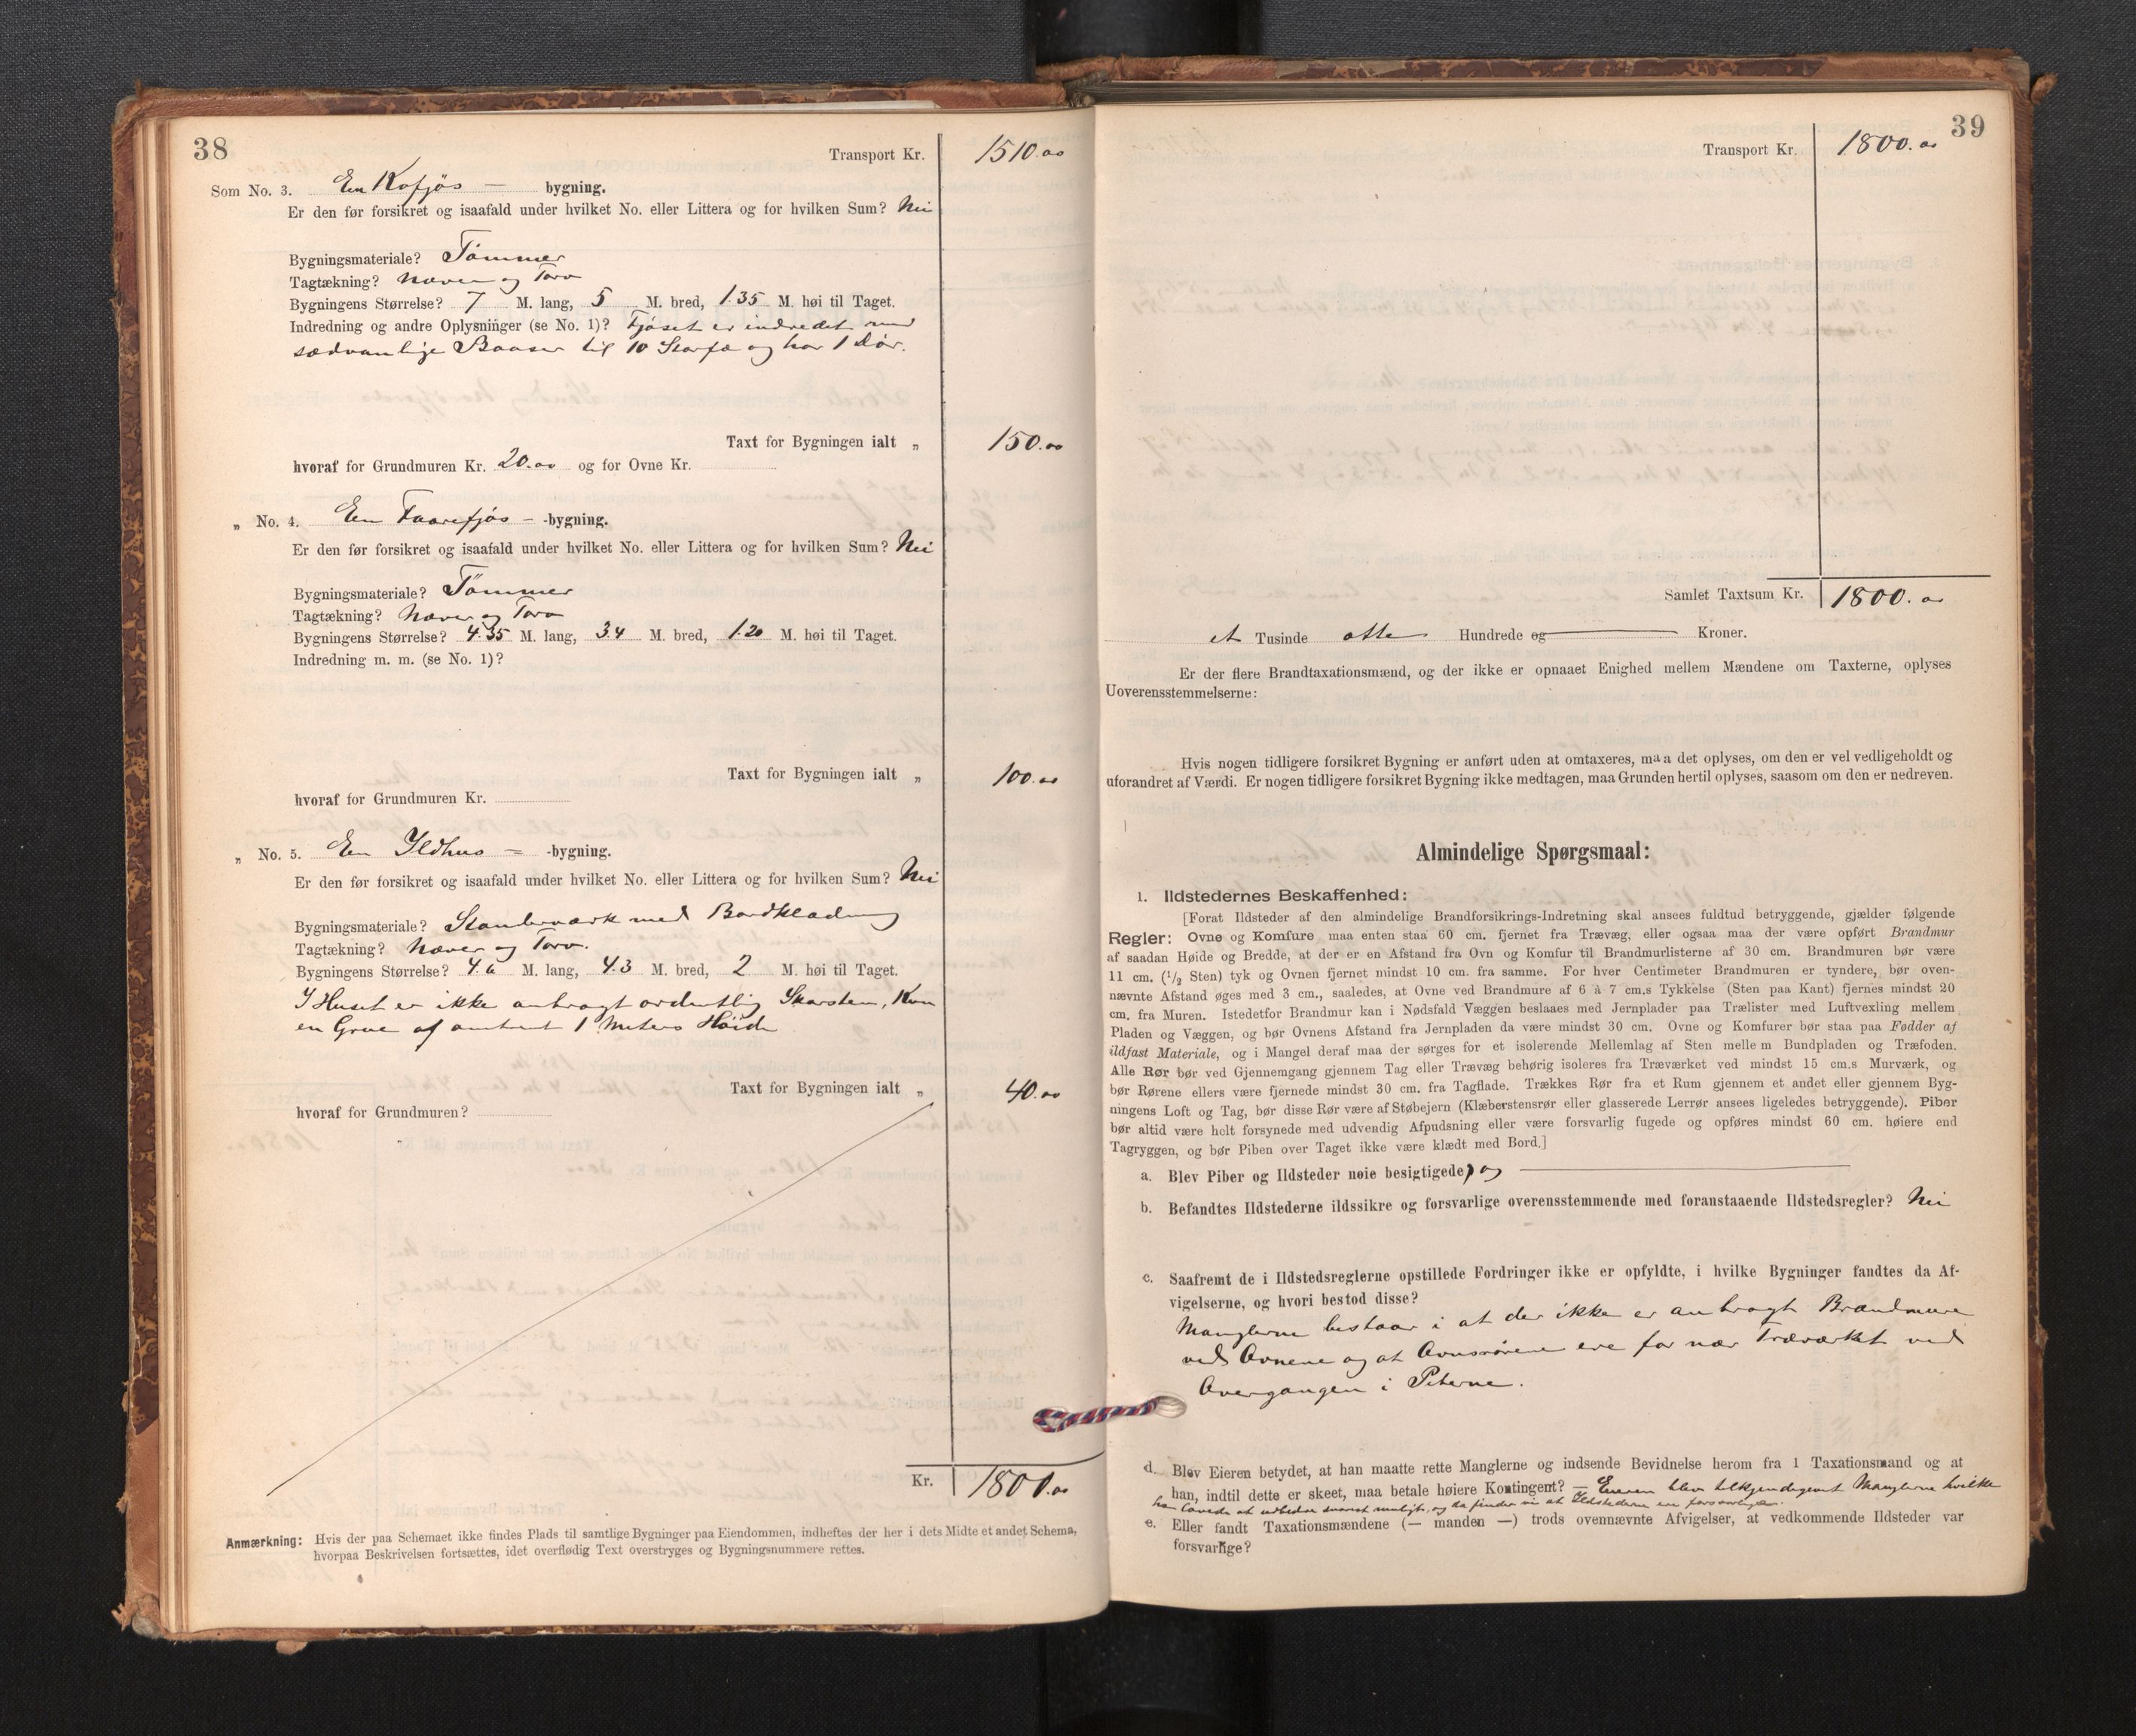 38
Transport Kr. 1510.00
Som No. 3. En Kofjøs — bygning.
Er den før forsikret og isaafald under hvilket No. eller Littera og for hvilken Sum? Nei
Bygningsmateriale? Tømmer
Tagtækning? Næver og Torv
Bygningens Størrelse? 7 M. lang, 5 M. bred, 1.35 M. høi til Taget.
Indredning og andre Oplysninger (se No. 1)? Fjøset er indredet med
sædvanlige Baaser til 10 Storfæ og har 1 Dør.
Taxt for Bygningen ialt „ 150.00
hvoraf for Grundmuren Kr. 20.00 og for Ovne Kr.
„ No. 4. En Faarefjøs — -bygning.
Er den før forsikret og isaafald under hvilket No. eller Littera og for hvilken Sum? Nei
Bygningsmateriale? Tømmer
Tagtækning? Næver og Torv
Bygningens Størrelse? 4.35 M. lang, 3.4 M. bred, 1.20 M. høi til Taget.
Indredning m. m. (se No. 1)?
Taxt for Bygningen ialt „ 100.00
hvoraf for Grundmuren Kr.
„ No. 5. En Ildhus — -bygning.
Er den før forsikret og isaafald under hvilket No. eller Littera og for hvilken Sum? Nei
Bygningsmateriale? Standerværk med Bordklædning
Tagtækning? Næver og Torv.
Bygningens Størrelse? 4.6 M. lang, 4.3 M. bred, 2 M. høi til Taget.
I Huset er ikke anbragt ordentlig Skorsten, Kun
en Grue af omtrent 1 Meters Høide
Taxt for Bygningen ialt „ 40.00
hvoraf for Grundmuren?
Kr. 1800.00
Anmærkning: Hvis der paa Schemaet ikke findes Plads til samtlige Bygninger paa Eiendommen, indheftes der her i dets Midte et andet Schema,
hvorpaa Beskrivelsen fortsættes, idet overflødig Text overstryges og Bygningsnummere rettes.
39
Transport Kr. 1800.00
Samlet Taxtsum Kr. 1800.00
et Tusinde otte Hundrede og — Kroner.
Er der flere Brandtaxationsmænd, og der ikke er opnaaet Enighed mellem Mændene om Taxterne, oplyses
Uoverensstemmelserne:
Hvis nogen tidligere forsikret Bygning er anført uden at omtaxeres, maa det oplyses, om den er vel vedligeholdt og
uforandret af Værdi. Er nogen tidligere forsikret Bygning ikke medtagen, maa Grunden hertil oplyses, saasom om den er nedreven.
Almindelige Spørgsmaal:
1. Ildstedernes Beskaffenhed:
[Forat Ildsteder af den almindelige Brandforsikrings-Indretning skal ansees fuldtud betryggende, gjælder følgende
Regler: Ovne og Komfure maa enten staa 60 cm. fjernet fra Trævæg, eller ogsaa maa der være opført Brandmur
af saadan Høide og Bredde, at der er en Afstand fra Ovn og Komfur til Brandmurlisterne af 30 cm. Brandmuren bør være
11 cm. (1/2 Sten) tyk og Ovnen fjernet mindst 10 cm. fra samme. For hver Centimeter Brandmuren er tyndere, bør oven-
nævnte Afstand øges med 3 cm., saaledes, at Ovne ved Brandmure af 6 à 7 cm.s Tykkelse (Sten paa Kant) fjernes mindst 20
cm. fra Muren. Istedetfor Brandmur kan i Nødsfald Væggen beslaaes med Jernplader paa Trælister med Luftvexling mellem
Pladen og Væggen, og bør Ovnens Afstand fra Jernpladen da være mindst 30 cm. Ovne og Komfurer bør staa paa Fødder af
ildfast Materiale, og i Mangel deraf maa der sørges for et isolerende Mellemlag af Sten mellem Bundpladen og Træfoden.
Alle Rør bør ved Gjennemgang gjennem Tag eller Trævæg behørig isoleres fra Træværket ved mindst 15 cm.s Murværk, og
bør Rørene ellers være fjernede mindst 30 cm. fra Tagflade. Trækkes Rør fra et Rum gjennem et andet eller gjennem Byg-
ningens Loft og Tag, bør disse Rør være af Støbejern (Klæberstensrør eller glasserede Lerrør ansees ligeledes betryggende). Piber
bør altid være helt forsynede med udvendig Afpudsning eller være forsvarlig fugede og opføres mindst 60 cm. høiere end
Tagryggen, og bør Piben over Taget ikke være klædt med Bord.]
a. Blev Piber og Ildsteder nøie besigtigede, og
b. Befandtes Ildstederne ildssikre og forsvarlige overensstemmende med foranstaaende Ildstedsregler? Nei
c. Saafremt de i Ildstedsreglerne opstillede Fordringer ikke er opfyldte, i hvilke Bygninger fandtes da Af-
vigelserne, og hvori bestod disse?
Manglerne bestaar i at der ikke er anbragt Brandmure
ved Ovnene og at Ovnsrørene ere for nær Træværket ved
Overgangen i Piberne.
d. Blev Eieren betydet, at han maatte rette Manglerne og indsende Bevidnelse herom fra 1 Taxationsmand og at
han, indtil dette er skeet, maa betale høiere Kontingent? — Eieren blev tilkjendegivet Manglerne hvilke
han lovede at udbedre snarest muligt, og da finder vi at Ildstederne ere forsvarlige.
e. Eller fandt Taxationsmændene (— manden —) trods ovennævnte Afvigelser, at vedkommende Ildsteder var
forsvarlige?